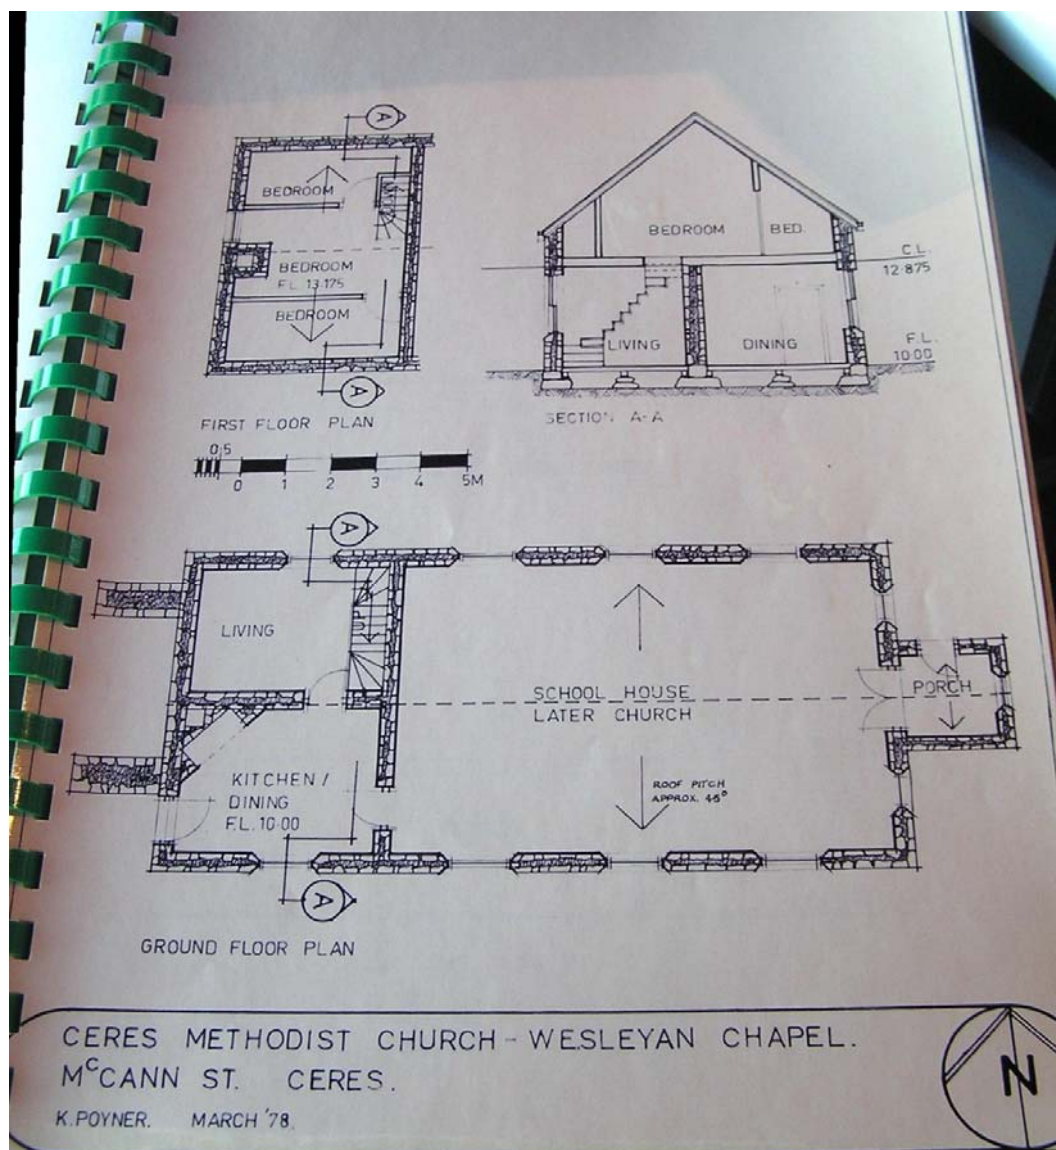 A
BEDROOM
BEDROOM
F.L. 13.175
BEDROOM
A
FIRST FLOOR PLAN
BEDROOM
BED.
C.L.
12.875
LIVING
DINING
F.L.
10.00
SECTION A-A
0.5
0 1 2 3 4 5M
A
LIVING
SCHOOL HOUSE
LATER CHURCH
PORCH
KITCHEN /
DINING
F.L. 10.00
ROOF PITCH
APPROX. 45°
A
GROUND FLOOR PLAN
CERES METHODIST CHURCH - WESLEYAN CHAPEL.
McCANN ST. CERES.
K. POYNER. MARCH '78.
N